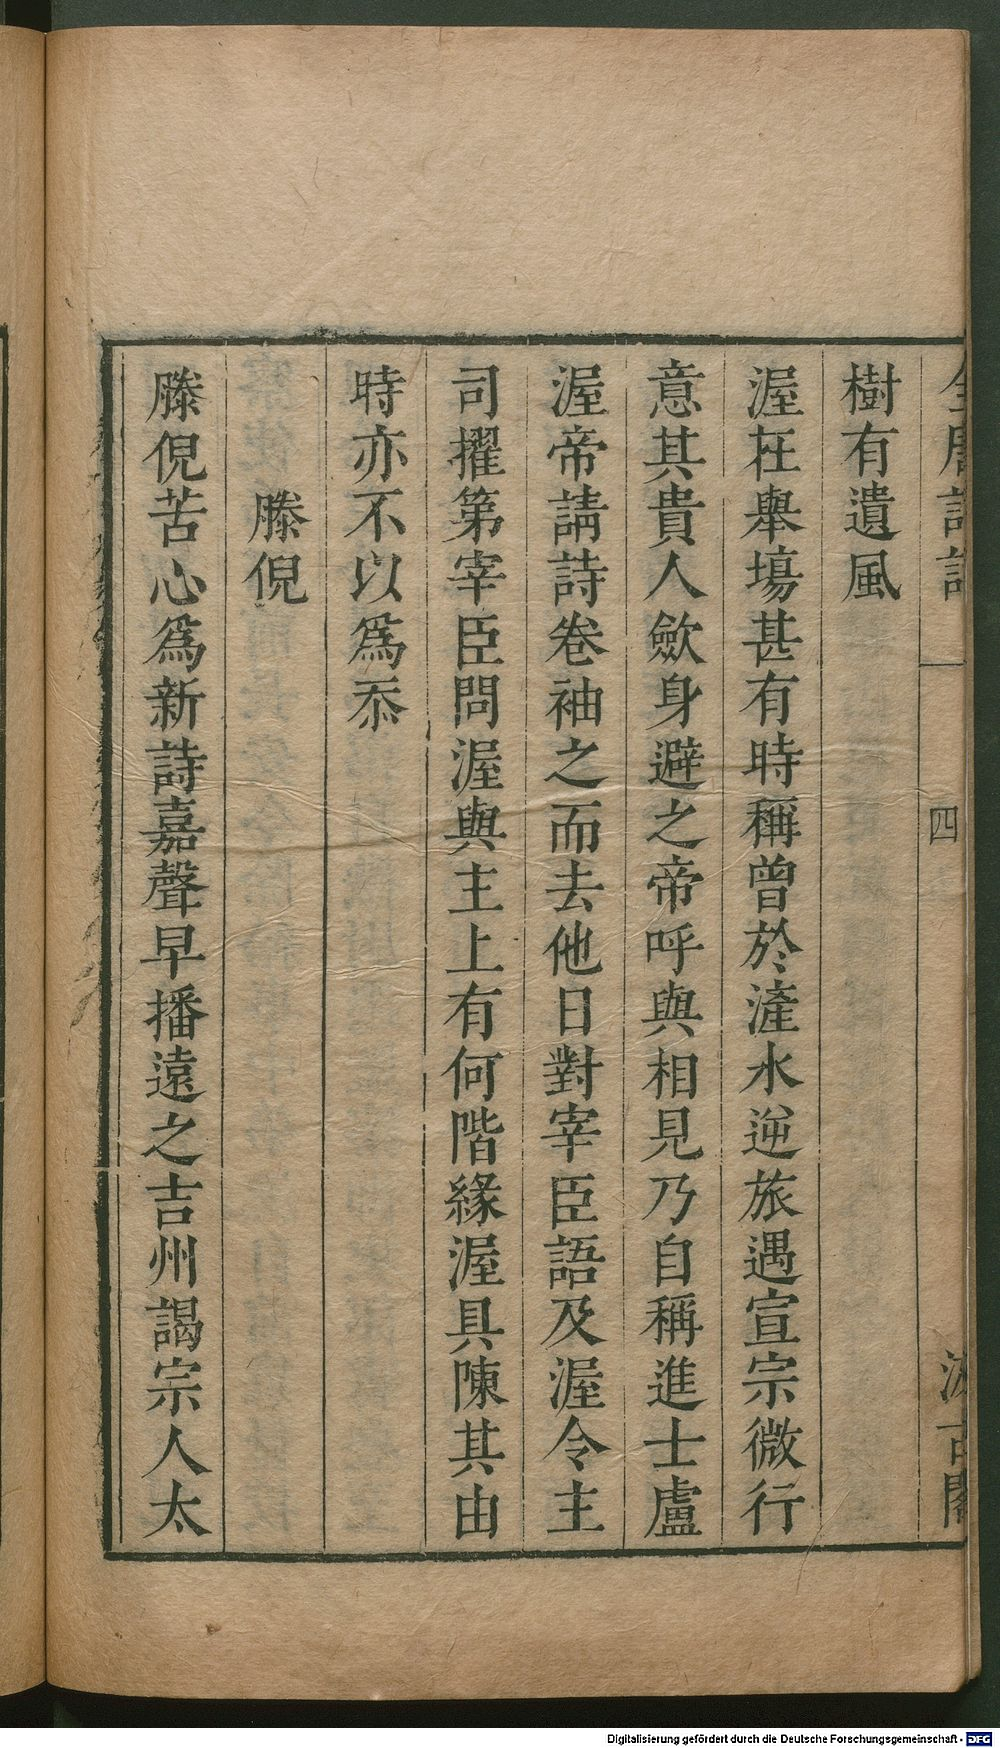 全唐詩話
四
汲古閣
樹有遺風
渥在舉塲甚有時稱曾於滻水逆旅遇宣宗微行
意其貴人歛身避之帝呼與相見乃自稱進士盧
渥帝請詩卷袖之而去他日對宰臣語及渥令主
司擢第宰臣問渥與主上有何階緣渥具陳其由
時亦不以爲忝
滕倪
滕倪苦心爲新詩嘉聲早播遠之吉州謁宗人太
Digitalisierung gefördert durch die Deutsche Forschungsgemeinschaft - DFG